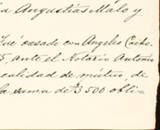 Angustias Malo y
Fué casado con Angeles Cacho.
5, ante el Notario Antonio
calidad de médico, di-
la suma de $3500 obli-